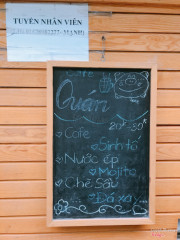 TUYỂN NHÂN VIÊN
Quán
20k-35k
Cafe
Sinh tố
Nước ép
Mojito
Chè Sấu
Đá xay...